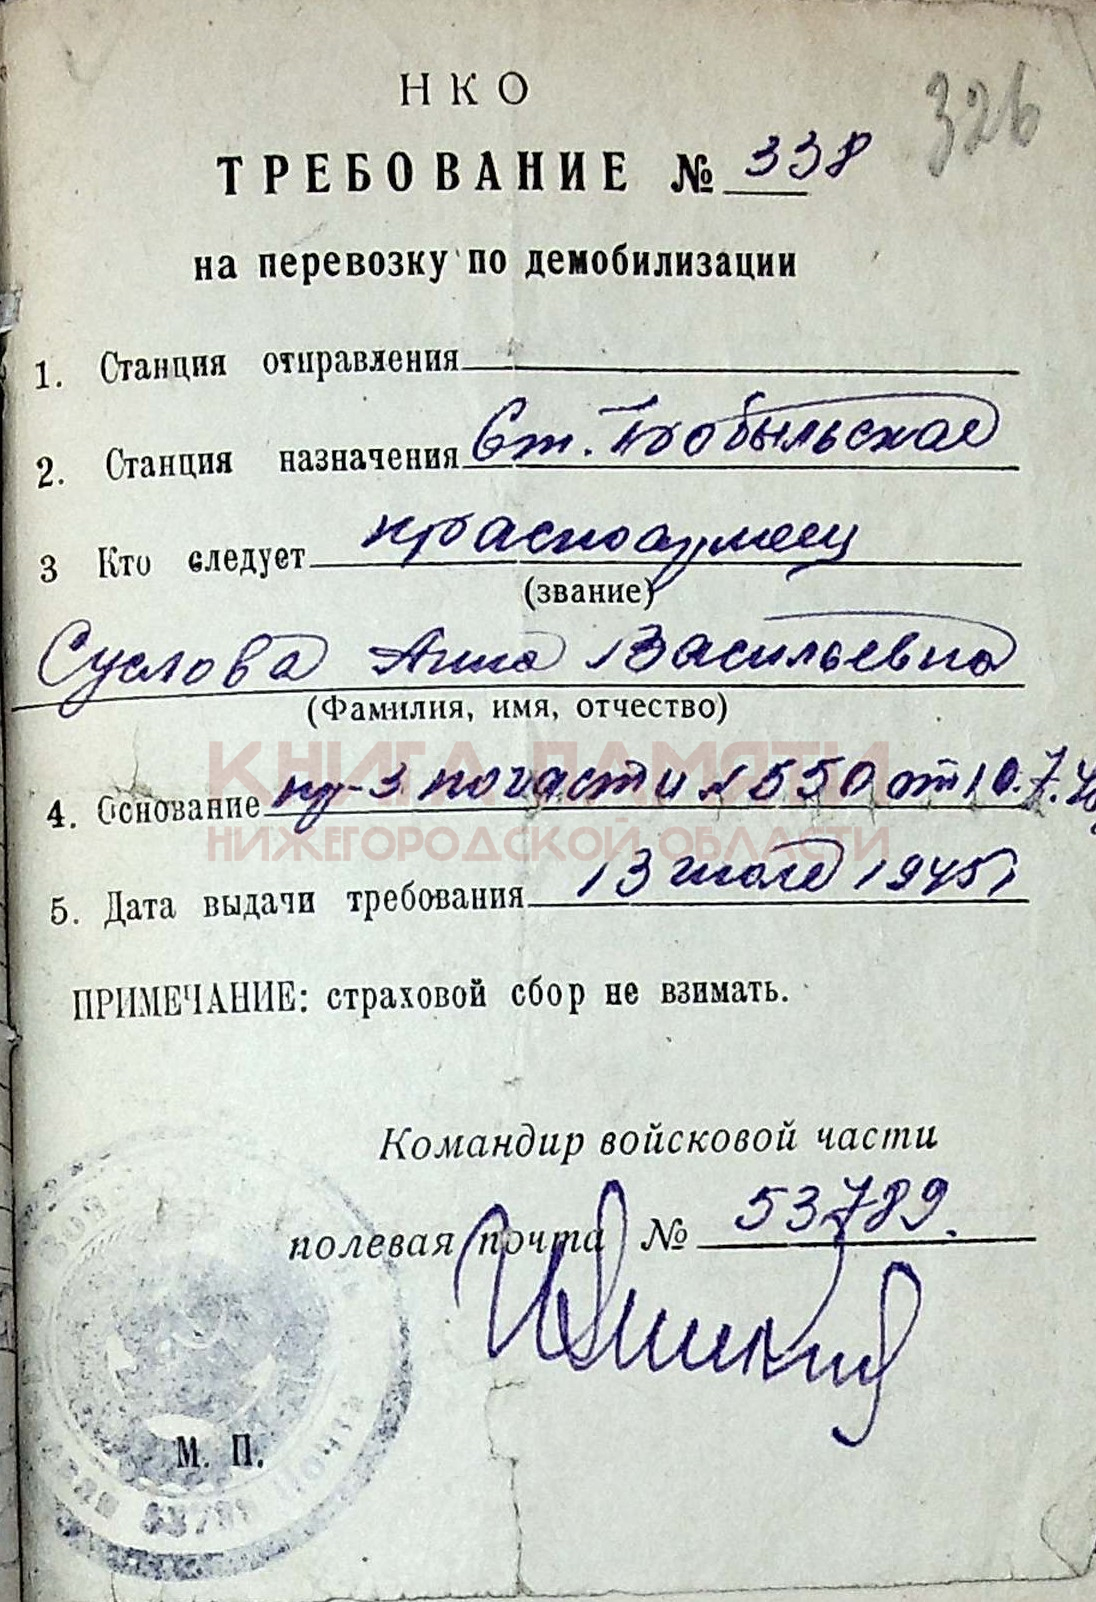 326
НКО
ТРЕБОВАНИЕ № 338
на перевозку по демобилизации
1. Станция отправления
2. Станция назначения Ст. Кобыльская
3 Кто следует красноармеец
(звание)
Суслова Анна Васильевна
(Фамилия, имя, отчество)
КНИГА ПАМЯТИ
4. Основание пр-з по части №550 от 10.7.45
НИЖЕГОРОДСКОЙ ОБЛАСТИ
5. Дата выдачи требования 13 июля 1945г
ПРИМЕЧАНИЕ: страховой сбор не взимать.
Командир войсковой части
полевая почта № 53789.
М. П.
53789